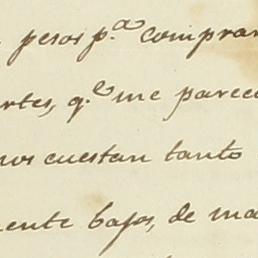 pesos p.ª comprar
rtes, q.e me parec
nos cuestan tanto
mente bajos, de ma